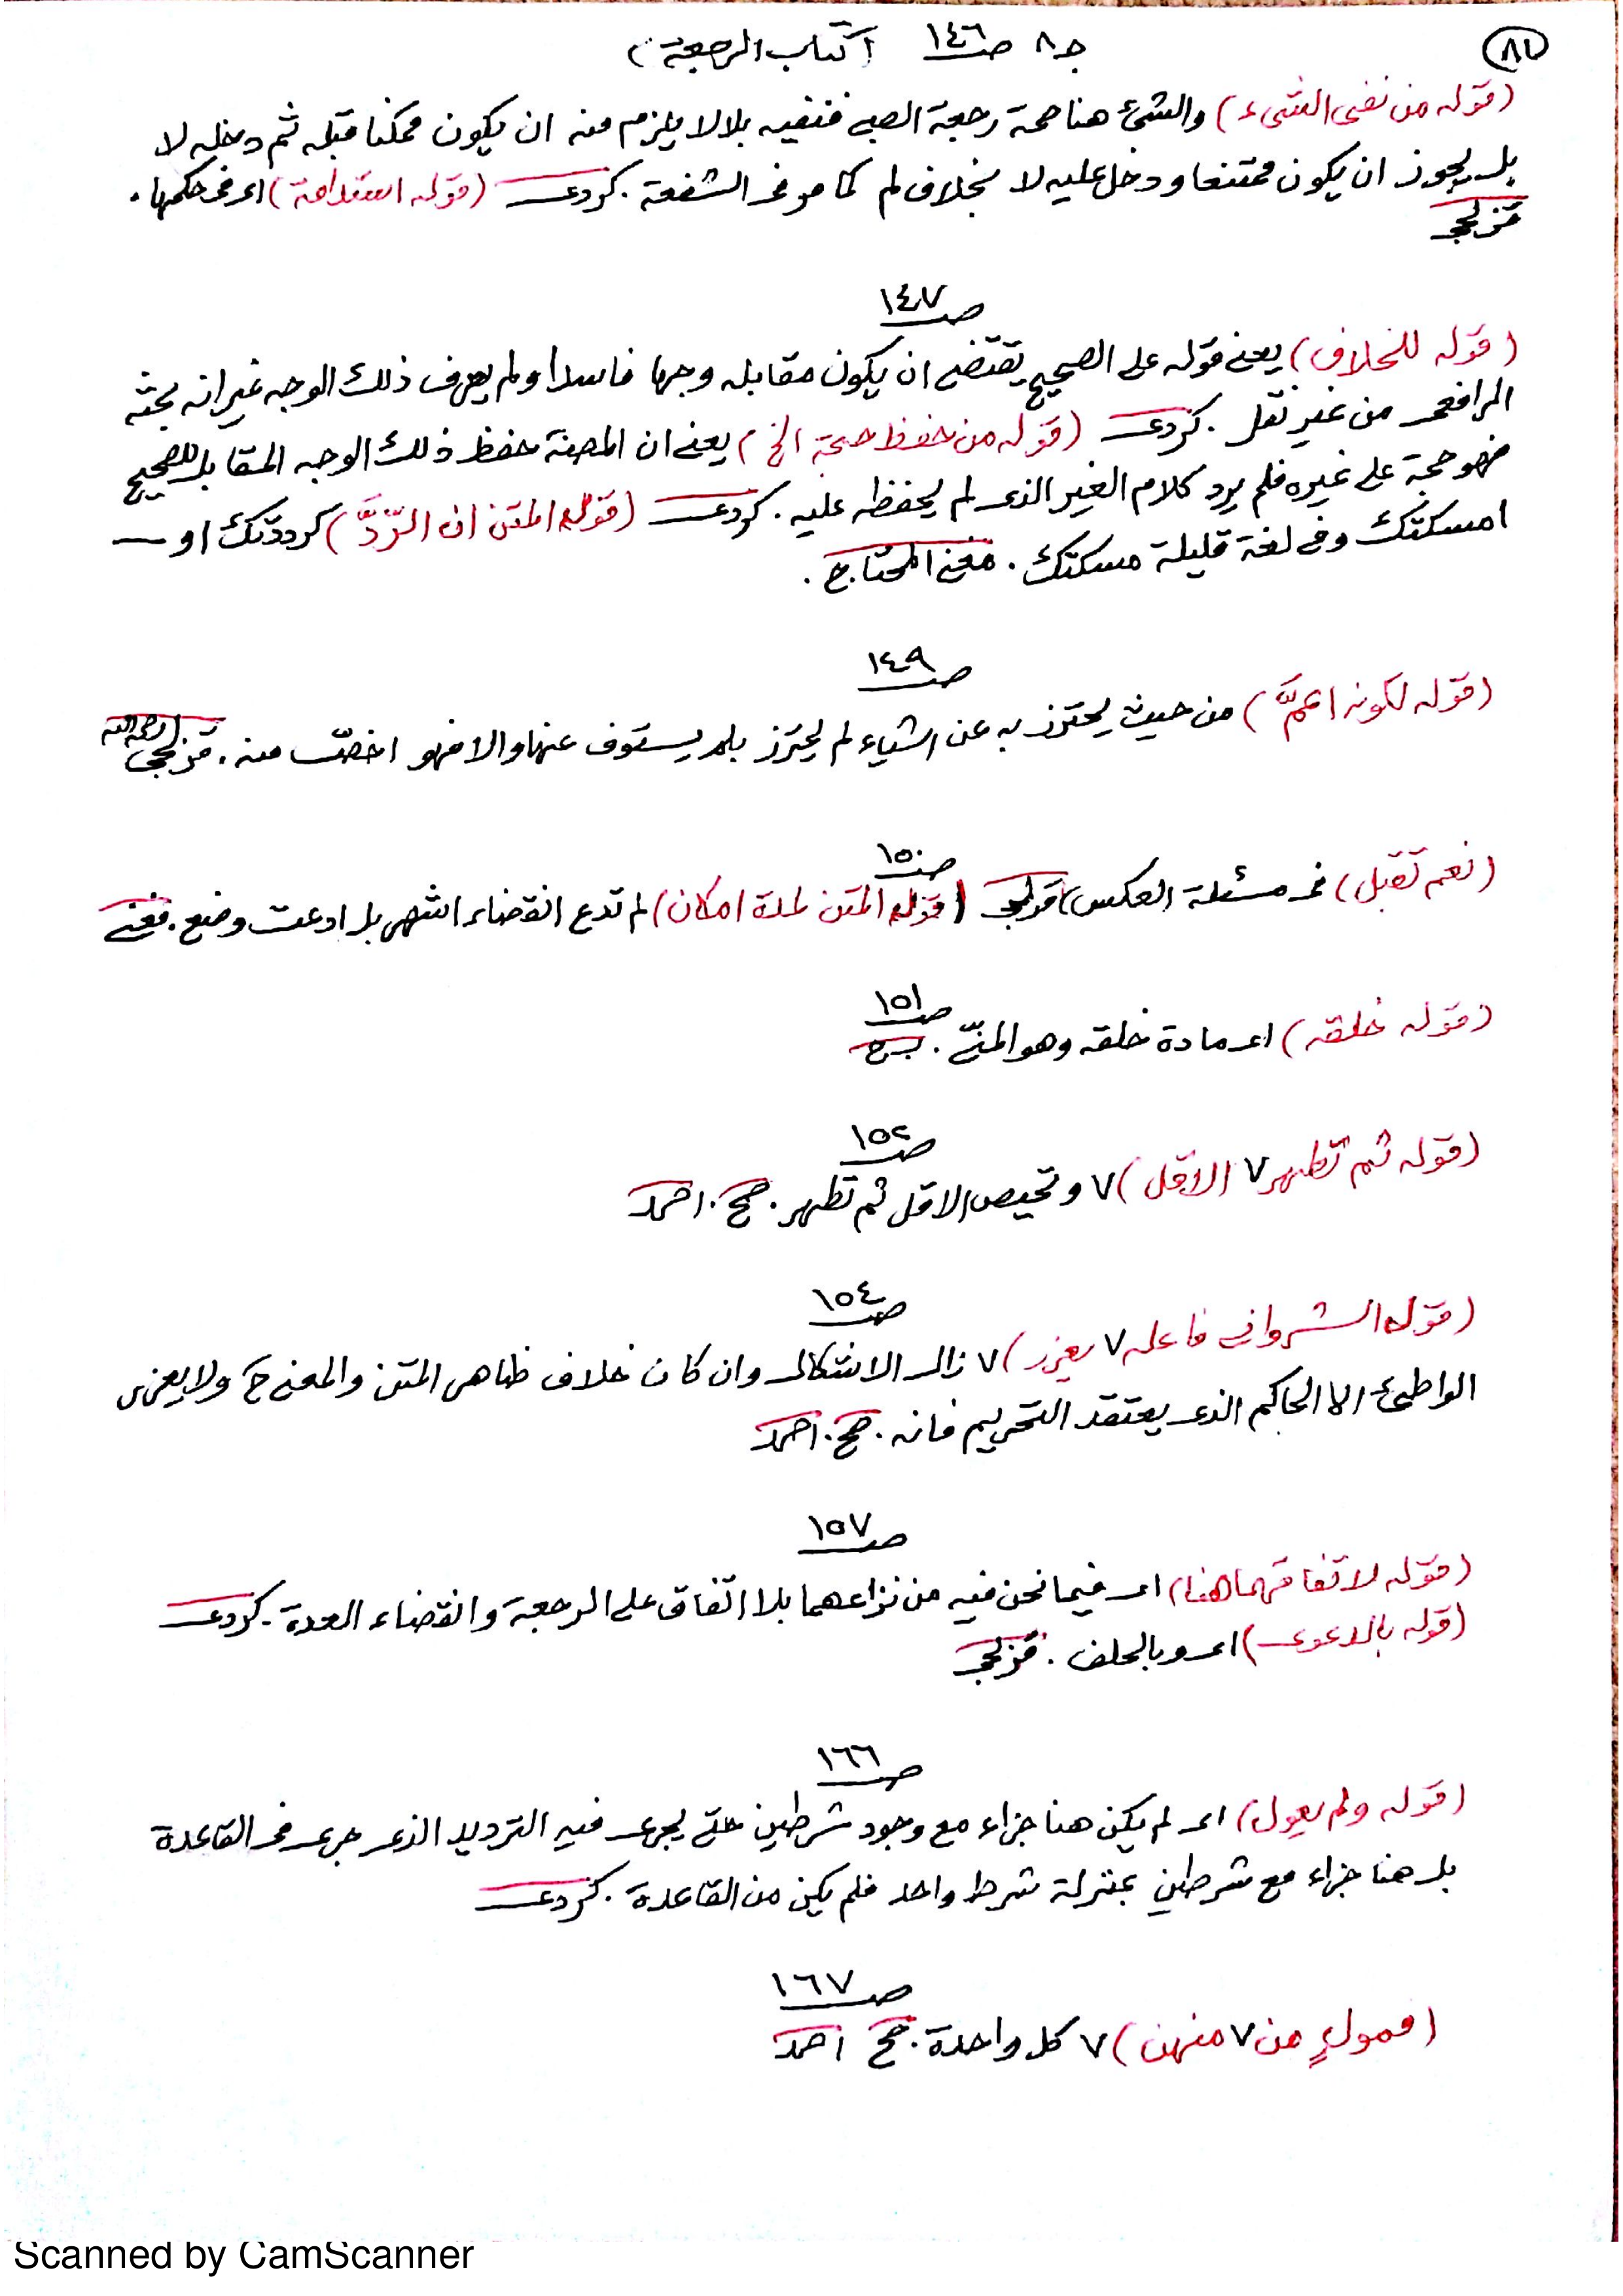 ٨٢
ج ٨ صـ ١٤٦ (كتاب الرجعة)
(قوله من نفى الشىء) والشئ هنا صحة رجعة الصبى فنفيه بلا لا يلزم منه ان يكون ممكنا قبله ثم دخله لا
بل يجوز ان يكون ممتنعا ودخل عليه لا بخلاف لم كما هو فى الشفعة . كردى (قوله استدامة) اى فى حكمها .
قزلجى
صـ ١٤٧
(قوله للخلاف) يعنى قوله على الصحيح يقتضى ان يكون مقابله وجها فاسدا ولم يعرف ذلك الوجه غير انه بحثه
الرافعى من غير نقل . كردى (قوله من حفظ حجة الخ) يعنى ان المصنف حفظ ذلك الوجه المقابل للصحيح
فهو حجة على غيره فلم يرد كلام الغير الذى لم يحفظه عليه . كردى (قوله المتن ان الردَّ) كرددتك او
امسكتك وفى لغة قليلة مسكتك . مغنى المحتاج .
صـ ١٤٩
(قوله لكونه اعمَّ) من حيث يحترز به عن اشياء لم يحترز بلم يستوف عنها والا فهو اخصّ منه . قزلجى رحمه الله
صـ ١٥٠
(نعم تقبل) فى مسئلة العكس) قزلجى (قوله المتن لمدة امكان) لم تدع انقضاء اشهر بل ادعت وضع . مغنى
صـ ١٥١
(قوله خلقه) اى مادة خلقه وهو المنىّ . بج
صـ ١٥٢
(قوله ثم تطهر ٧ الاقل) ٧ وتحيض الاقل ثم تطهر . صح . احمد
صـ ١٥٤
(قوله الشروانى فاعله ٧ يعزر) ٧ زال الاشكال وان كان خلاف ظاهر المتن والمعنى ح ولا يعزر
الواطئ الا الحاكم الذى يعتقد التحريم فانه . صح . احمد
صـ ١٥٧
(قوله لاتفاقهما هنا) اى فيما نحن فيه من نزاعهما بلا اتفاق على الرجعة وانقضاء العدة . كردى
(قوله بالدعوى) اى وبالحلف . قزلجى
صـ ١٦٦
(قوله ولم يعول) اى لم يكن هنا جزاء مع وجود شرطين حتى يجرى فيه الترديد الذى جرى فى القاعدة
بل هنا جزاء مع شرطين بمنزلة شرط واحد فلم يكن من القاعدة . كردى
صـ ١٦٧
(فمولٍ من ٧ منهن) ٧ كل واحدة . صح احمد
Scanned by CamScanner